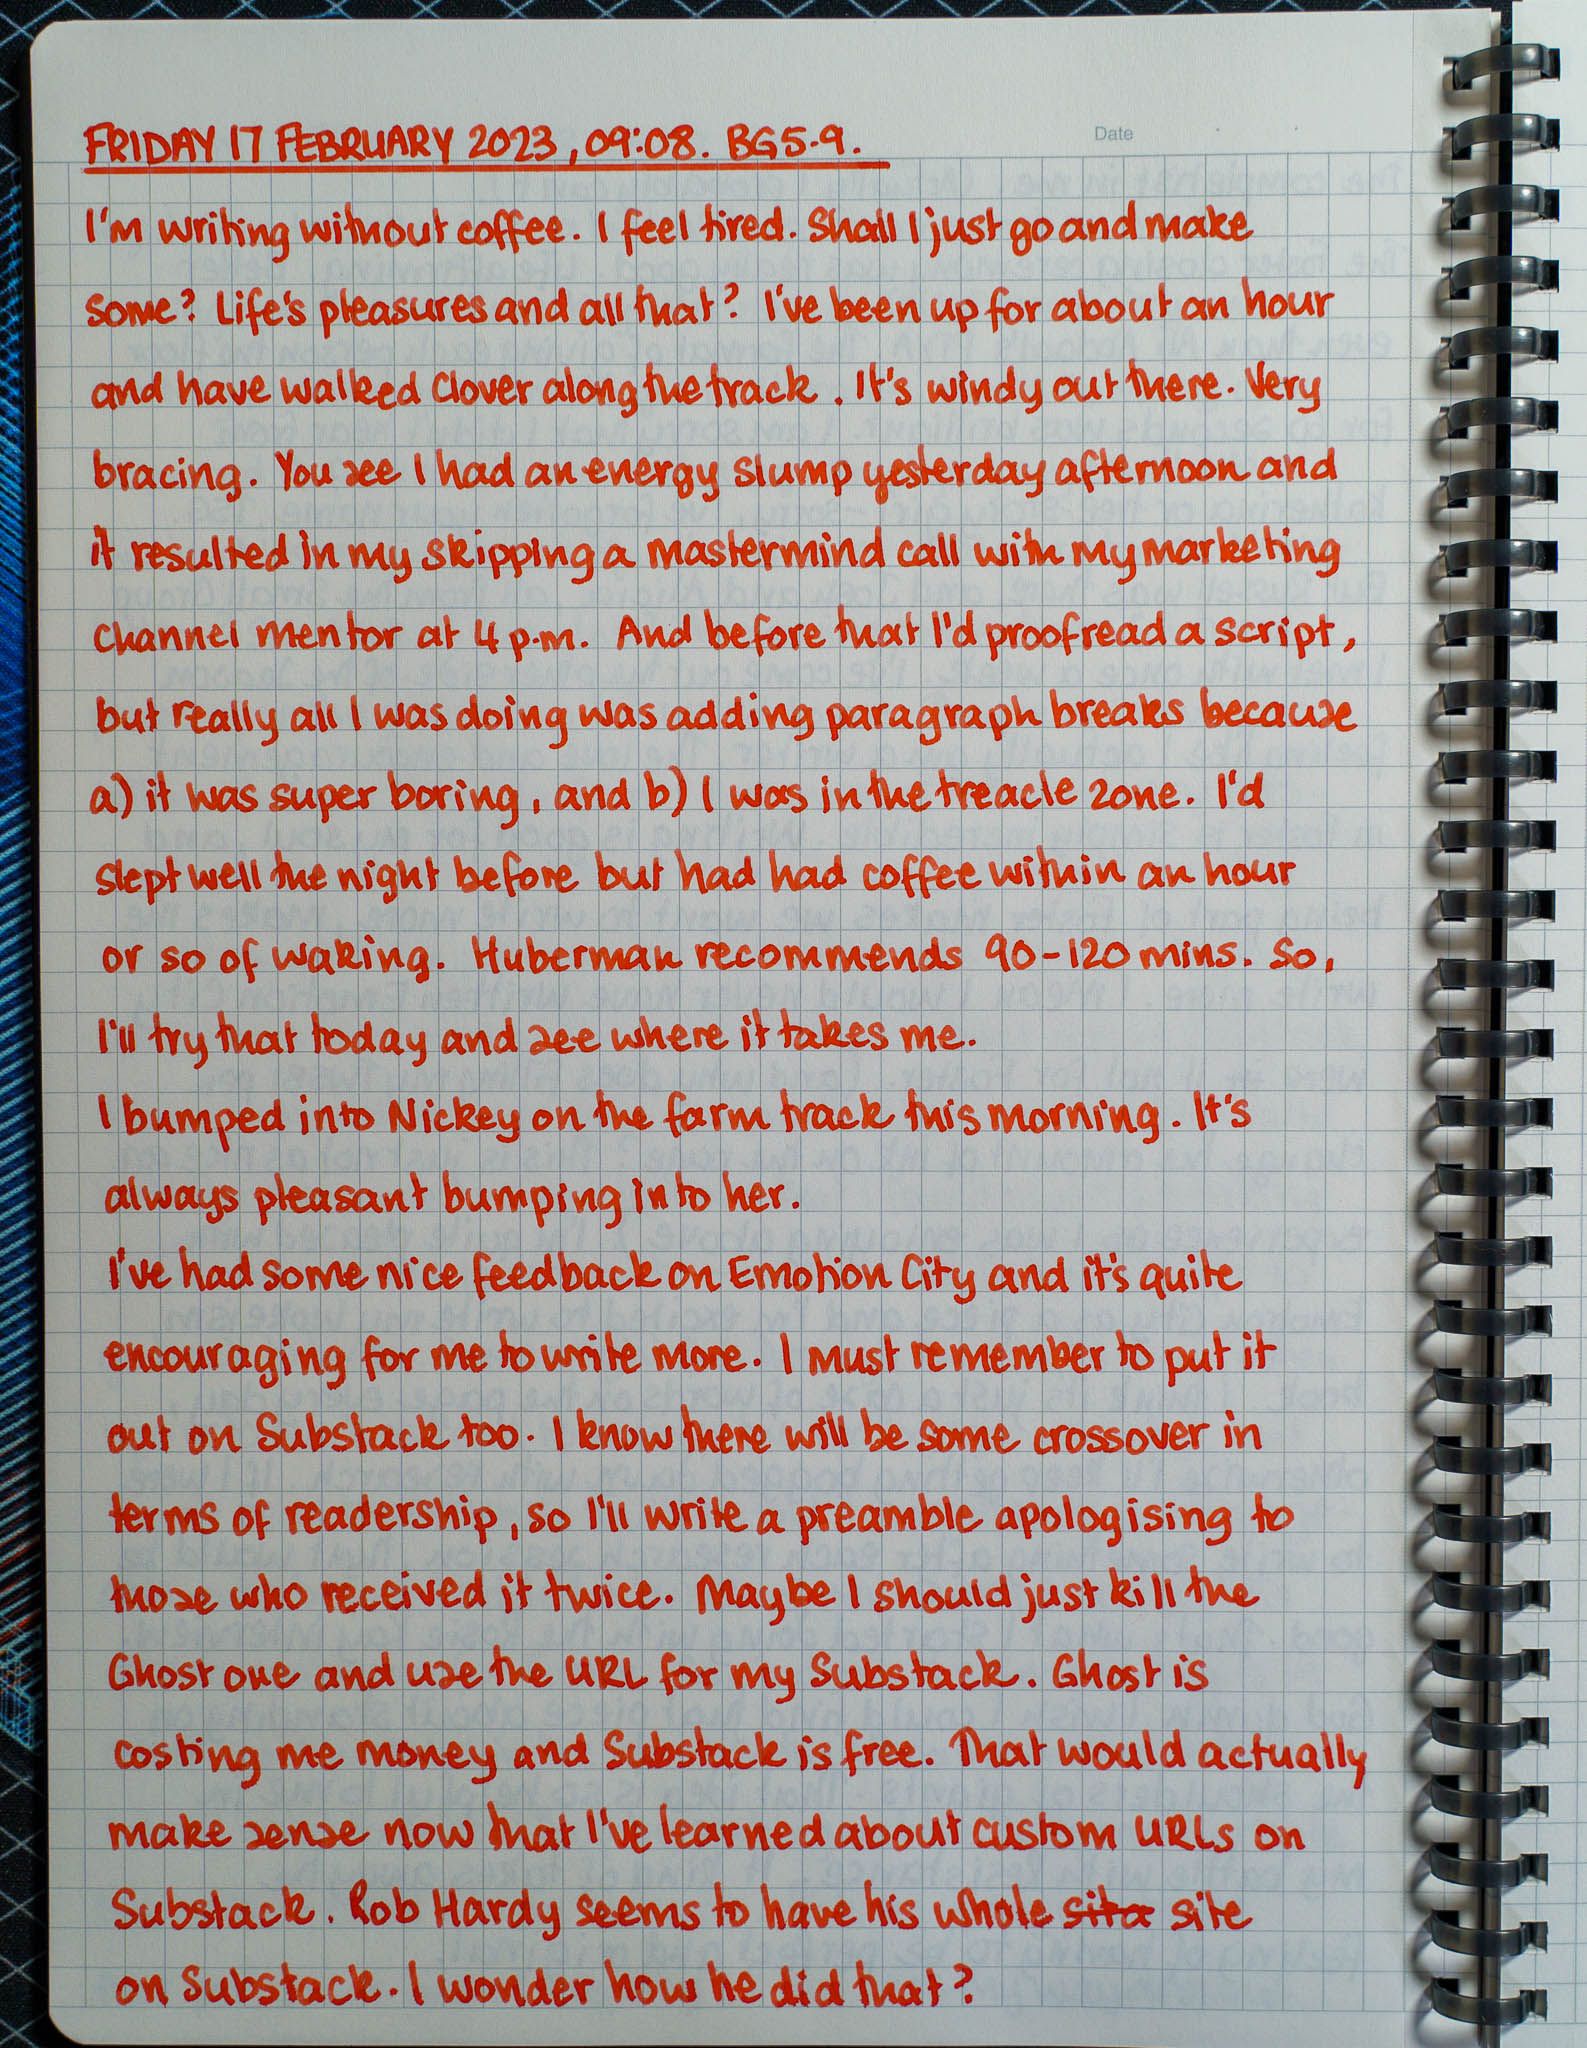 Date
FRIDAY 17 FEBRUARY 2023, 09:08. BG5.9.
I'm writing without coffee. I feel tired. Shall I just go and make
some? Life's pleasures and all that? I've been up for about an hour
and have walked Clover along the track. It's windy out there. Very
bracing. You see I had an energy slump yesterday afternoon and
it resulted in my skipping a mastermind call with my marketing
channel mentor at 4 p.m. And before that I'd proofread a script,
but really all I was doing was adding paragraph breaks because
a) it was super boring, and b) I was in the treacle zone. I'd
slept well the night before but had had coffee within an hour
or so of waking. Huberman recommends 90-120 mins. So,
I'll try that today and see where it takes me.
I bumped into Nickey on the farm track this morning. It's
always pleasant bumping into her.
I've had some nice feedback on Emotion City and it's quite
encouraging for me to write more. I must remember to put it
out on Substack too. I know there will be some crossover in
terms of readership, so I'll write a preamble apologising to
those who received it twice. Maybe I should just kill the
Ghost one and use the URL for my Substack. Ghost is
costing me money and Substack is free. That would actually
make sense now that I've learned about custom URLs on
Substack. Rob Hardy seems to have his whole sita site
on Substack. I wonder how he did that?